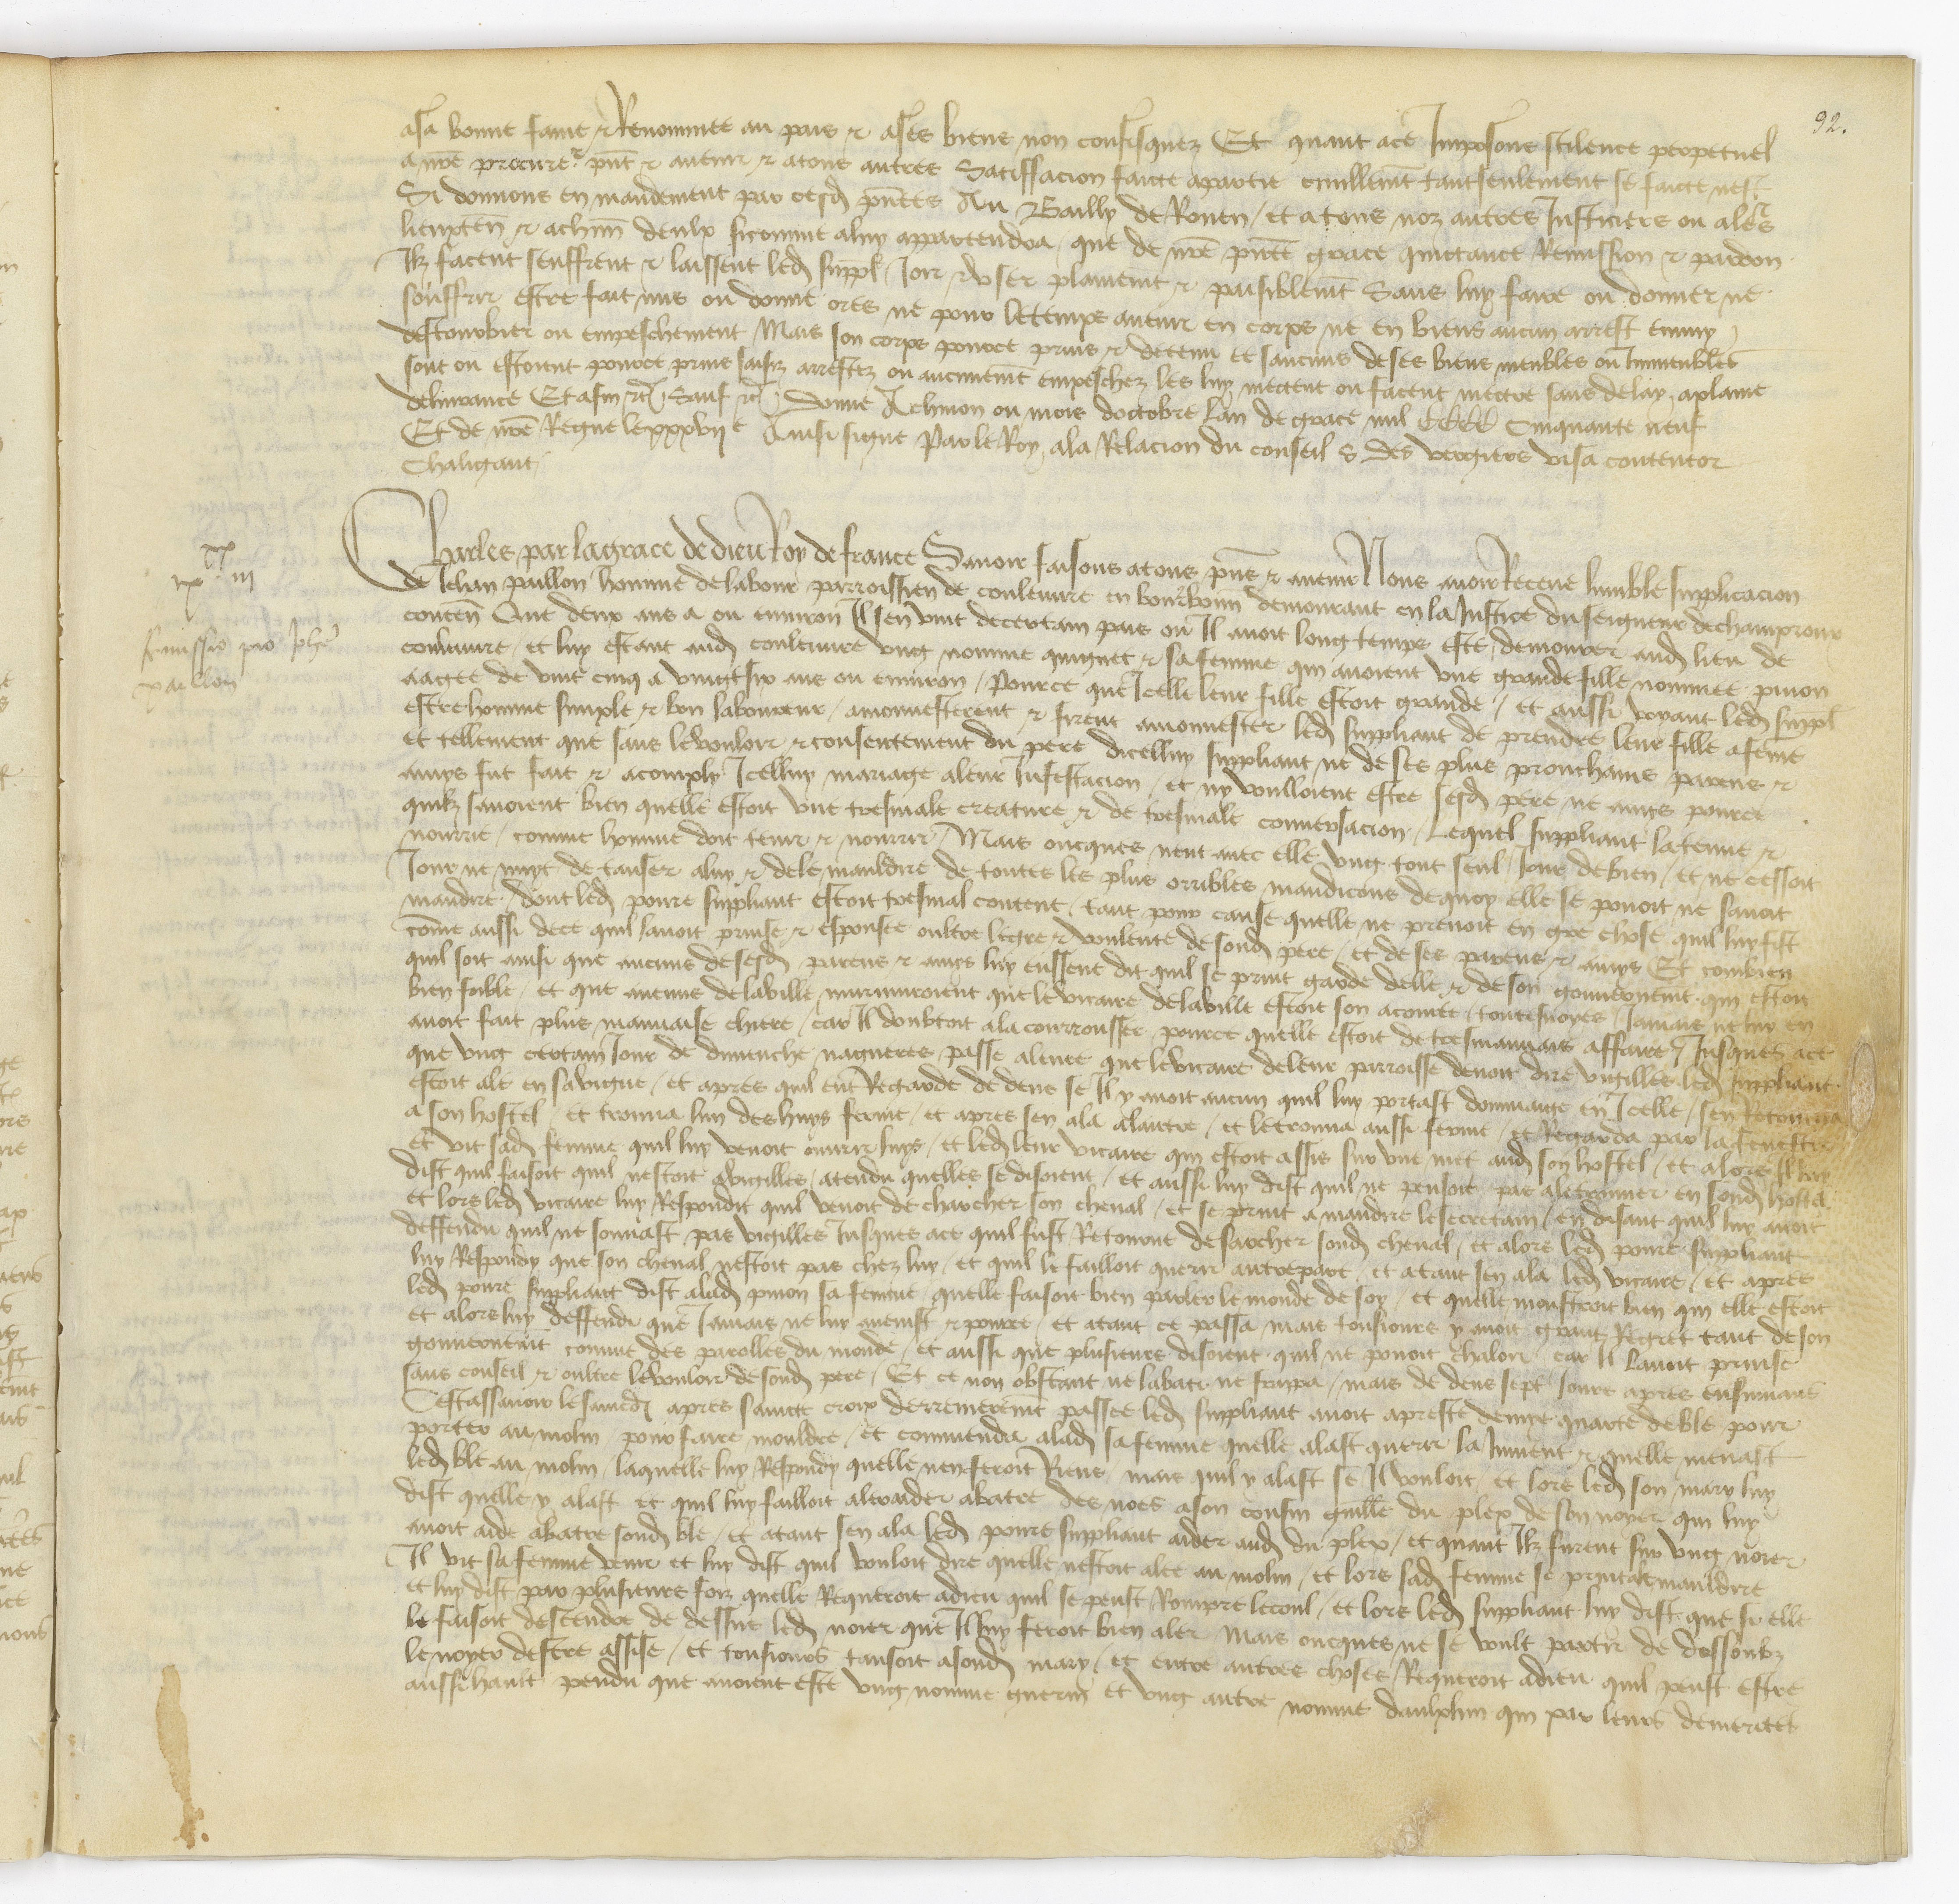 92.
asa bonne fame & Renommee au pais & ases biens non confisquez Et quant ace Imposons scilence perpetuel
a nre procureur pnt & auenir & atous autres Satisfacion faicte apartie ciuillemt tantseulement se faicte nest
Si donnons en mandement par cesd pntes Au Bailly de Rouen / et atous noz autres Justiciers ou aleurs
lieuxten & achun deulx sicomme aluy appartendra que de nre pnte grace quictance Remission & pardon
Ilz facent seuffrent & laissent led suppl Joir & user plainemt & paisiblemt Sans luy faire ou donner ne
souffrir estre fait mis ou donne ores ne pour letemps auenir en corps ne en biens aucun arrest ennuy
destourbier ou empeschement Mais son corps pource prins & detenu et saucuns deses biens meubles ou Immeubles
sont ou estoient pource prins saisiz arrestez ou aucunemt empeschez les luy mectent ou facent mectre sans delay aplaine
deliurance Et afin etc Sauf etc Donne Achinon ou mois doctobre Lan de grace mil cccc Cinquante neuf
Et de nre Regne lexxxvij e Ainsi signe Par le Roy ala Relacion du conseil S des vergiers visa contentor
Chaligaut
Charles par lagrace de dieu Roy de france Sauoir faisons atous pns & auenir Nous auoir Receue lumble supplicacion
de Jehan paillon homme delabour parroissien de couleuure en bourbonn demourant en laJustice duseigneur dechamproux
conten Que deux ans a ou enuiron Il sen vint decertain pais ou Il auoit long temps este demourer aud lieu de
couleuure / et luy estant aud couleuure ung nomme quignet & safemme qui auoient une grande fille nommee
aagee de vint cinq a vingtsix ans ou enuiron / Pource que Icelle leur fille estoit grande / et aussi voyant led suppl
estre homme simple & bon laboureur / amonnesterent & firent amonnester led suppliant de prendre leur fille afeme
et tellement que sans levouloir & consentement du pere dicelluy suppliant ne de ses plus prouchains parens &
amys fut fait & acomply Icelluy mariage aleur Infestacion / et ny voulloient estre sesd pere ne amys pource
quilz sauoient bien quelle estoit une tresmale creature & de tresmale conuersacion / Lequel suppliant latenue &
nourrie / comme homme doit tenir & nourrir / Mais oncques neut auec elle ung tout seul Jour debien / et ne cessoit
Jour ne nuyt de tanser aluy & dele mauldire de toutes les plus orribles maudicons dequoy elle se pouoit ne sauoit
maudire / dont led poure suppliant estoit tresmal content / tant pour cause quelle ne prenoit en gre chose quil luy fist
come aussi dece quil lauoit prinse & espousee oultre legre & voulente desond pere / et de ses parens & amys Et combien
quil soit ainsi que aucuns desesd parens & amys luy eussent dit quil se print garde delle & deson gouuernemt qui estoit
bien foible / et que aucuns delaville murmuroient que levicaire delaville estoit son acointe / toutesuoyes Jamais ne luy en
auoit fait plus mauuaise chiere / car Il doubtoit ala courroussee pource quelle estoit de tresmauuais affaire / Jusques ace
que ung certain Jour de dimenche nagueres passe aleure que levicaire deleur parroisse deuoit dire vigilles led suppliant
estoit ale en savigne / et apres quil eut Regarde de dens se Il y auoit aucun quil luy portast dommaige en Icelle / sen Retourna
a son hostel / et trouua lun deshuys ferme / et apres sen ala alautre / et letrouua aussi ferme / et Regarda par lafenestre
et vit sad femme quil luy venoit ouurir luys / et led leur vicaire qui estoit assis sur une met aud son hostel / et alors Il luy
dist quil faisoit quil nestoit avigilles / atendu quelles se disoient / et aussi luy dist quil ne pensoit pas aletrouuer en sond hostel
et lors led vicaire luy Respondit quil venoit de charcher son cheual / et se print a maudire lesecretain / en disant quil luy auoit
deffendu quil ne sonnast pas vigilles Jusques ace quil fust Retourne desarcher sond cheual / et alors led poure suppliant
luy Respondy que son cheual nestoit pas chez luy / et quil le failloit querir autrepart / et atant sen ala led vicaire / et apres
led poure suppliant dist alad sa femme / quelle faisoit bien parler le monde de soy / et quelle monstroit bien qui elle estoit
et alors luy deffendi que Jamais ne luy auenist / et atant ce passa mais tousiours y auoit grant Regret tant deson
gouuernemt comme des parolles du monde / et aussi que plusieurs disoient quil ne pouoit chaloir car Il lauoit prinse
sans conseil & oultre levouloir desond pere / Et ce non obstant ne labati ne frappa / mais de dens sept Jours apres ensuiuans
Cestassauoir lesamedi apres saincte croix derrenieremt passee led suppliant auoit apreste demye quarte deble pour
porter au molin pour faire mouldre / et commenda alad safemme quelle alast querir la Jument & quelle menast
led ble au molin / laquelle luy Respondy quelle nenferoit Riens / mais quil y alast se Il vouloit / et lors led son mary luy
dist quelle y alast et quil luy failloit aleraider abatre des noes ason cousin guille du plex de son noyer qui luy
auoit aide abatre sond ble / et atant sen ala led poure suppliant aider aud du plex / et quant Ilz furent sur ung noier
Il vit sa femme venir et luy dist quil vouloit dire quelle nestoit alee au molin / et lors sad femme se print alemauldire
et luy dist par plusieurs foiz quelle Requeroit adieu quil se peust Rompre lecoul / et lors led suppliant luy dist que si elle
le faisoit descendre de dessus led noier que Il luy feroit bien aler Mais oncques ne se voult partir de dessoubz
le noyer destre assise / et tousiours tansoit asond mary / et entre autres choses Requeroit adieu quil peust estre
aussi hault pendu que auoient este ung nomme guerin et ung autre nomme daulphin qui par leurs demerites
Remissio pro Johe
paillon